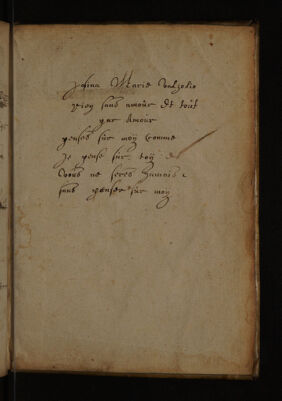 Marie
rien sans amour Et tout
par Amour
penses sur moy Comme
Je pense sur toy
Vous ne seres Jamais
sans penser sur moy